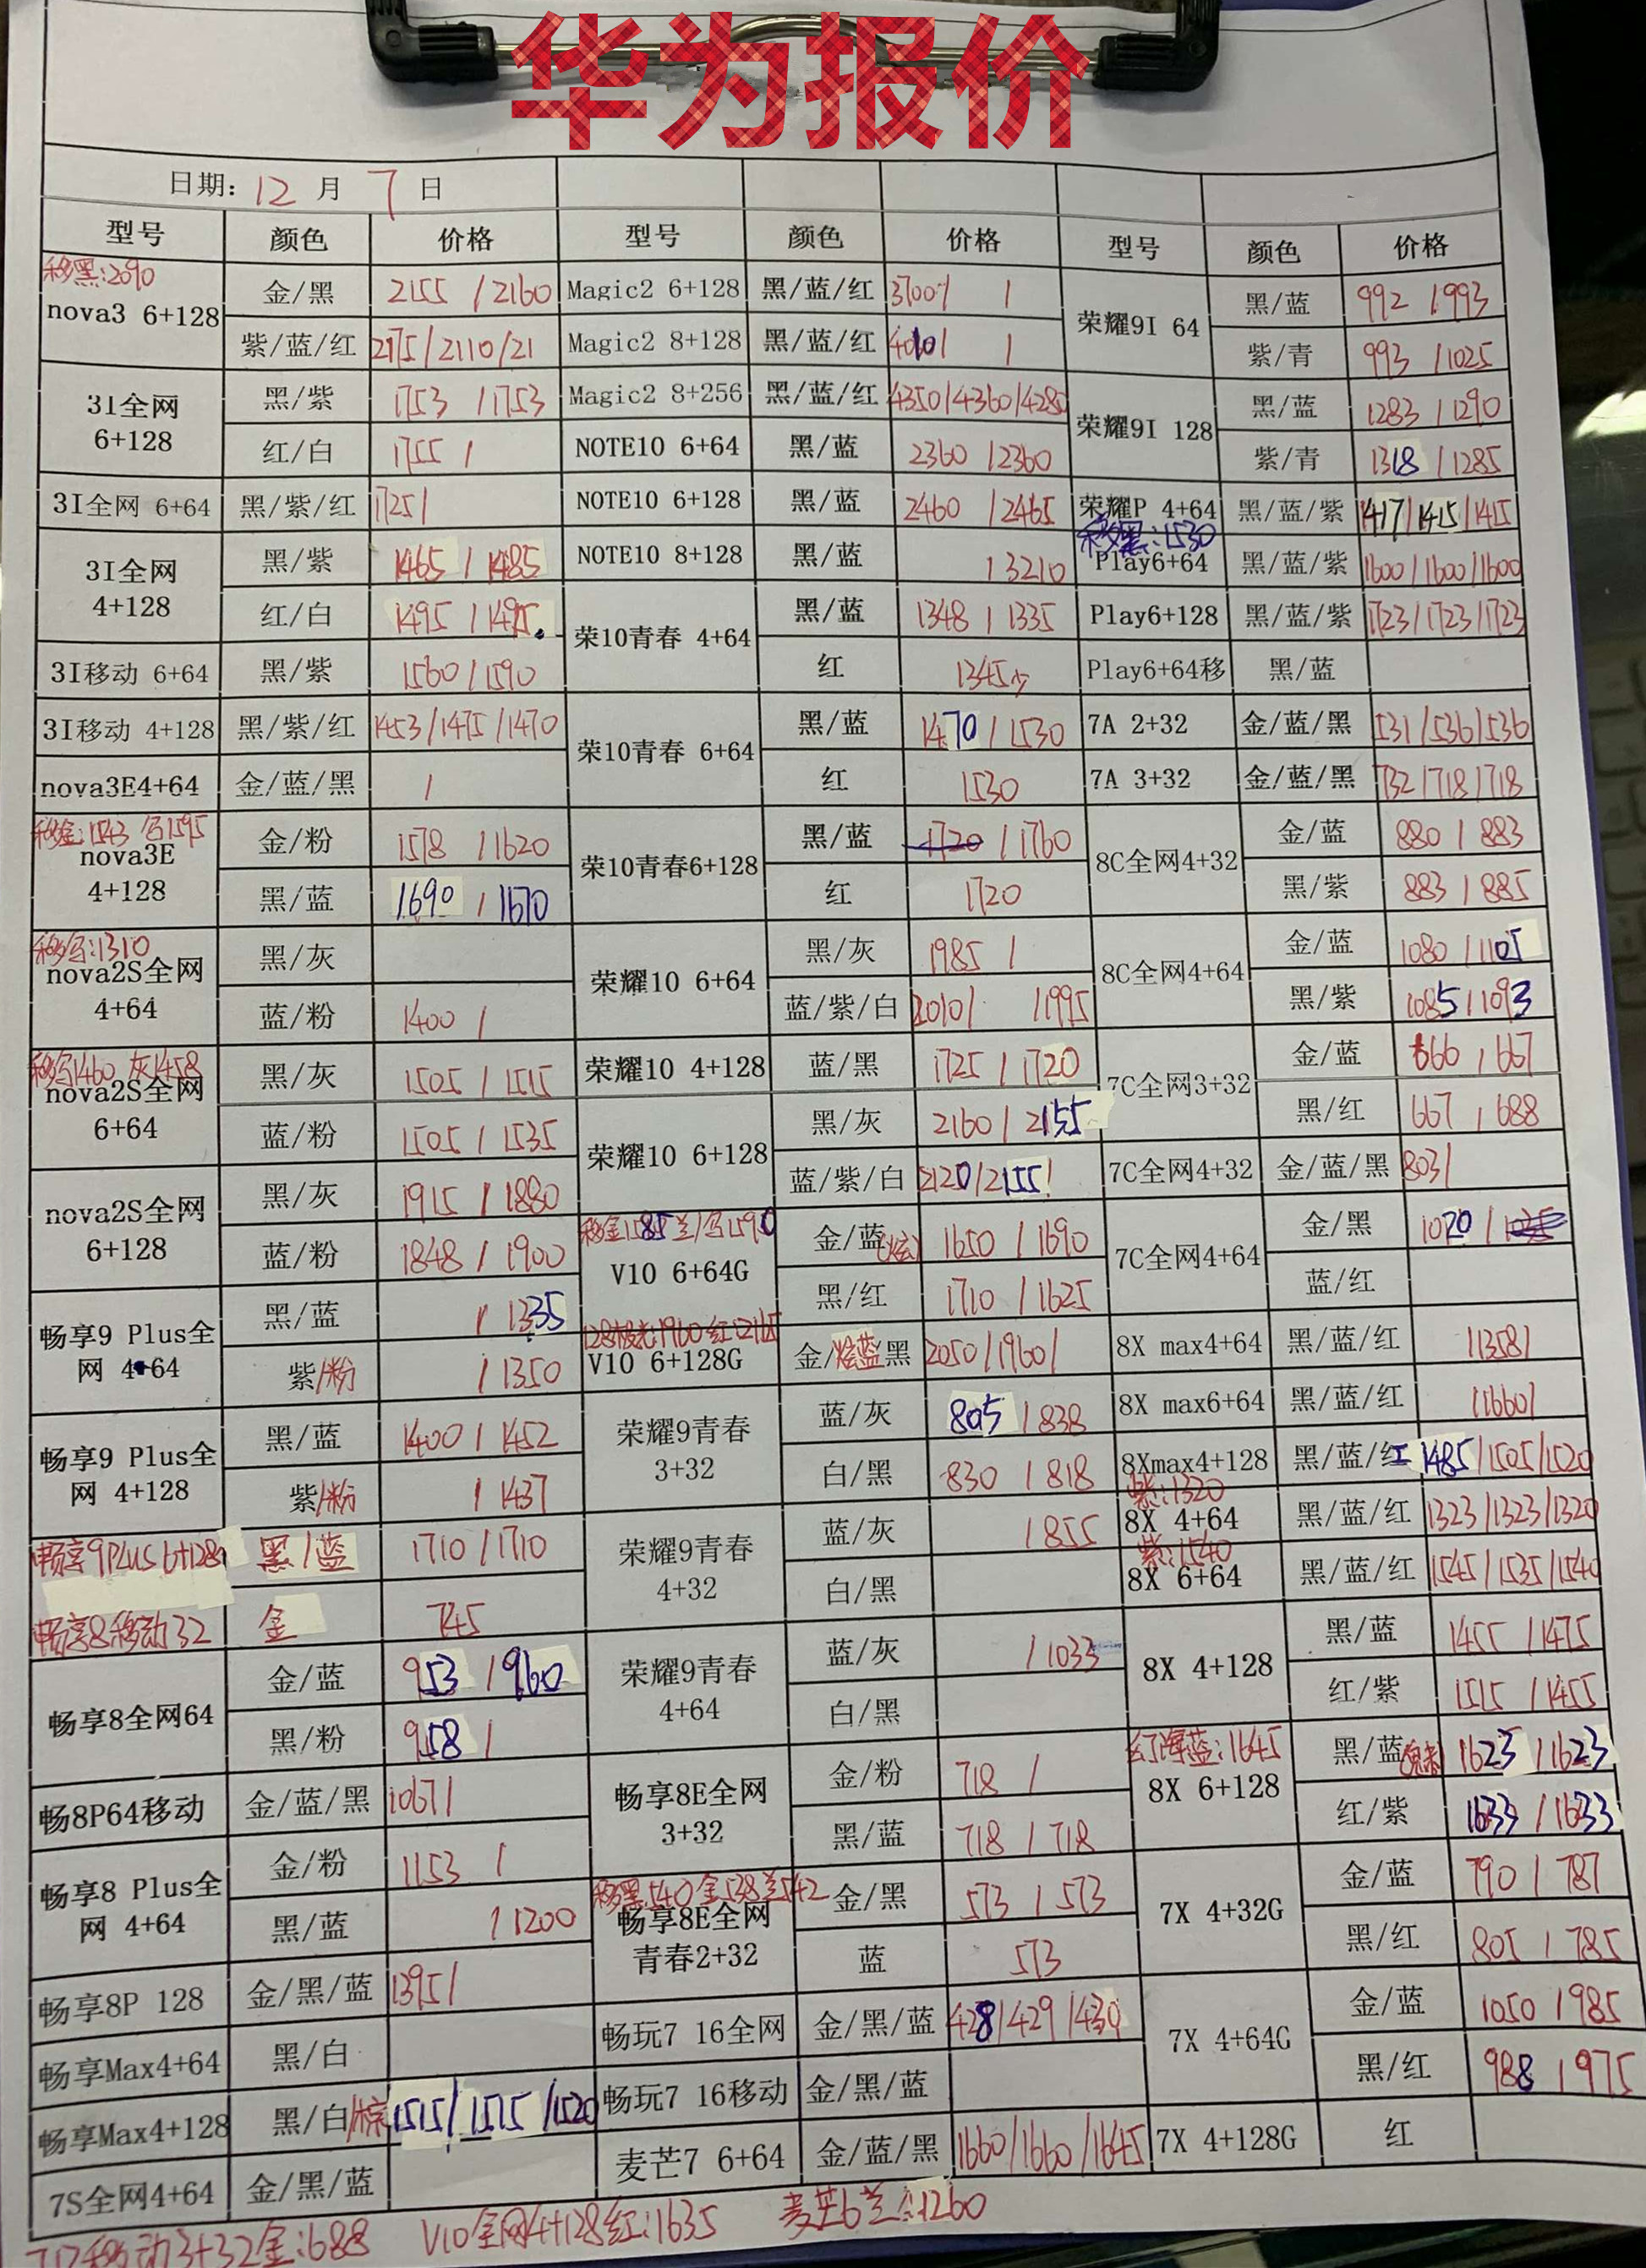 华为报价
日期: 12 月 7 日
型号 颜色 价格 型号 颜色 价格 型号 颜色 价格
移黑:2090
nova3 6+128 金/黑 2155 / 2160
紫/蓝/红 2175/2110/21
3I全网 6+128 黑/紫 1753 / 1753
红/白 1755 /
3I全网 6+64 黑/紫/红 1725/
3I全网 4+128 黑/紫 1465 / 1485
红/白 1495 / 1495
3I移动 6+64 黑/紫 1560 / 1590
3I移动 4+128 黑/紫/红 1453/1475/1470
nova3E4+64 金/蓝/黑 /
移金:1543
nova3E 4+128 金/粉 1578 / 1620
黑/蓝 1690 / 1670
nova2S全网 4+64 黑/灰
蓝/粉 1400 /
灰1458
nova2S全网 6+64 黑/灰 1505 / 1515
蓝/粉 1505 / 1535
nova2S全网 6+128 黑/灰 1915 / 1880
蓝/粉 1848 / 1900
畅享9 Plus全网 4+64 黑/蓝 / 1335
紫/粉 / 1350
畅享9 Plus全网 4+128 黑/蓝 1400 / 1452
紫/粉 / 1437
畅享9PLUS 6+128 黑/蓝 1710 / 1710
畅享8移动32 金 745
畅享8全网64 金/蓝 953 / 960
黑/粉 958 /
畅8P64移动 金/蓝/黑 1067/
畅享8 Plus全网 4+64 金/粉 1153 /
黑/蓝 / 1200
畅享8P 128 金/黑/蓝 1395/
畅享Max4+64 黑/白
畅享Max4+128 黑/白/棕 1515/ 1515 /1520
7S全网4+64 金/黑/蓝
Magic2 6+128 黑/蓝/红 3700/ /
Magic2 8+128 黑/蓝/红 4010/ /
Magic2 8+256 黑/蓝/红 4350/4360/4280
NOTE10 6+64 黑/蓝 2360 / 2360
NOTE10 6+128 黑/蓝 2460 / 2465
NOTE10 8+128 黑/蓝 / 3210
荣10青春 4+64 黑/蓝 1348 / 1335
红 1345
荣10青春 6+64 黑/蓝 1470 / 1530
红 1530
荣10青春6+128 黑/蓝 1720 / 1760
红 1720
荣耀10 6+64 黑/灰 1985 /
蓝/紫/白 2010/ /1995
荣耀10 4+128 蓝/黑 1725 / 1720
荣耀10 6+128 黑/灰 2160 / 2155
蓝/紫/白 2120/2155/
V10 6+64G 金/蓝(炫) 1650 / 1690
黑/红 1710 / 1625
V10 6+128G 金/炫蓝/黑 2050/1960/
荣耀9青春 3+32 蓝/灰 805 / 838
白/黑 830 / 818
荣耀9青春 4+32 蓝/灰 / 855
白/黑
荣耀9青春 4+64 蓝/灰 / 1033
白/黑
畅享8E全网 3+32 金/粉 718 /
黑/蓝 718 / 718
移黑540 金538 兰542
畅享8E全网 青春2+32 金/黑 573 / 573
蓝 573
畅玩7 16全网 金/黑/蓝 428/429/430
畅玩7 16移动 金/黑/蓝
麦芒7 6+64 金/蓝/黑 1660/1660/1645
荣耀9I 64 黑/蓝 992 / 993
紫/青 993 / 1025
荣耀9I 128 黑/蓝 1283 / 1290
紫/青 1318 / 1285
荣耀P 4+64 黑/蓝/紫 1417/1415/1415
移黑:1530
Play6+64 黑/蓝/紫 1600/1600/1600
Play6+128 黑/蓝/紫 1723/1723/1723
Play6+64移 黑/蓝
7A 2+32 金/蓝/黑 531/536/536
7A 3+32 金/蓝/黑 732/718/718
8C全网4+32 金/蓝 880 / 883
黑/紫 883 / 885
8C全网4+64 金/蓝 1080 / 1105
黑/紫 1085 / 1093
7C全网3+32 金/蓝 666 / 667
黑/红 667 / 688
7C全网4+32 金/蓝/黑 803/
7C全网4+64 金/黑 1020 /
蓝/红
8X max4+64 黑/蓝/红 /1358/
8X max6+64 黑/蓝/红 /1660/
8Xmax4+128 黑/蓝/红 1485/1505/1520
紫:1320
8X 4+64 黑/蓝/红 1323/1323/1320
紫:1540
8X 6+64 黑/蓝/红 1545/1535/1540
8X 4+128 黑/蓝 1455 / 1475
红/紫 1515 / 1455
幻海蓝:1645
8X 6+128 黑/蓝 1623 / 1623
红/紫 1633 / 1633
7X 4+32G 金/蓝 790 / 787
黑/红 805 / 785
7X 4+64G 金/蓝 1050 / 985
黑/红 988 / 975
7X 4+128G 红
移动3+32金:688 V10全网4+128红:1635 麦芒6兰:1260